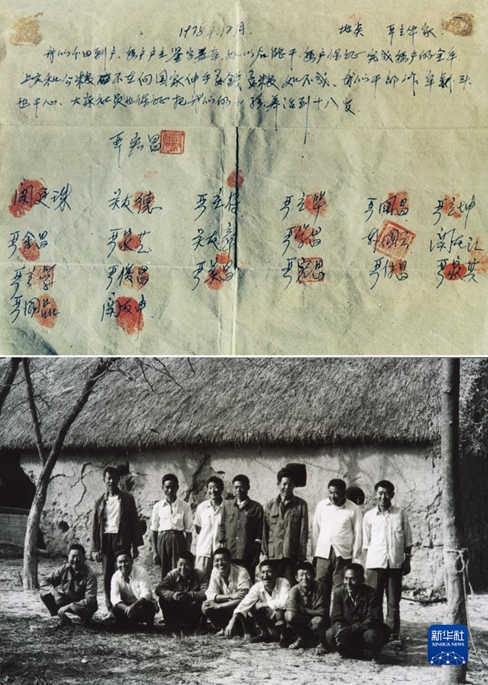 1978年12月. 地点 严立华家
我们分田到户，每户户主签字盖章，如以后能干，每户保证完成每户的全年
上交和公粮，不在向国家伸手要钱要粮，如不成，我们干部作牢刹头
也干心，大家社员也保证把我们的小孩养活到十八岁
严宏昌
关廷珠 关友德 严立符 严立华 严国昌 严立坤
严金昌 严家芝 关友章 严学昌 韩国云 关友江
严立学 严俊昌 严美昌 严宏昌 严付昌 严家其
严国品 关友申
新华社
XINHUA NEWS